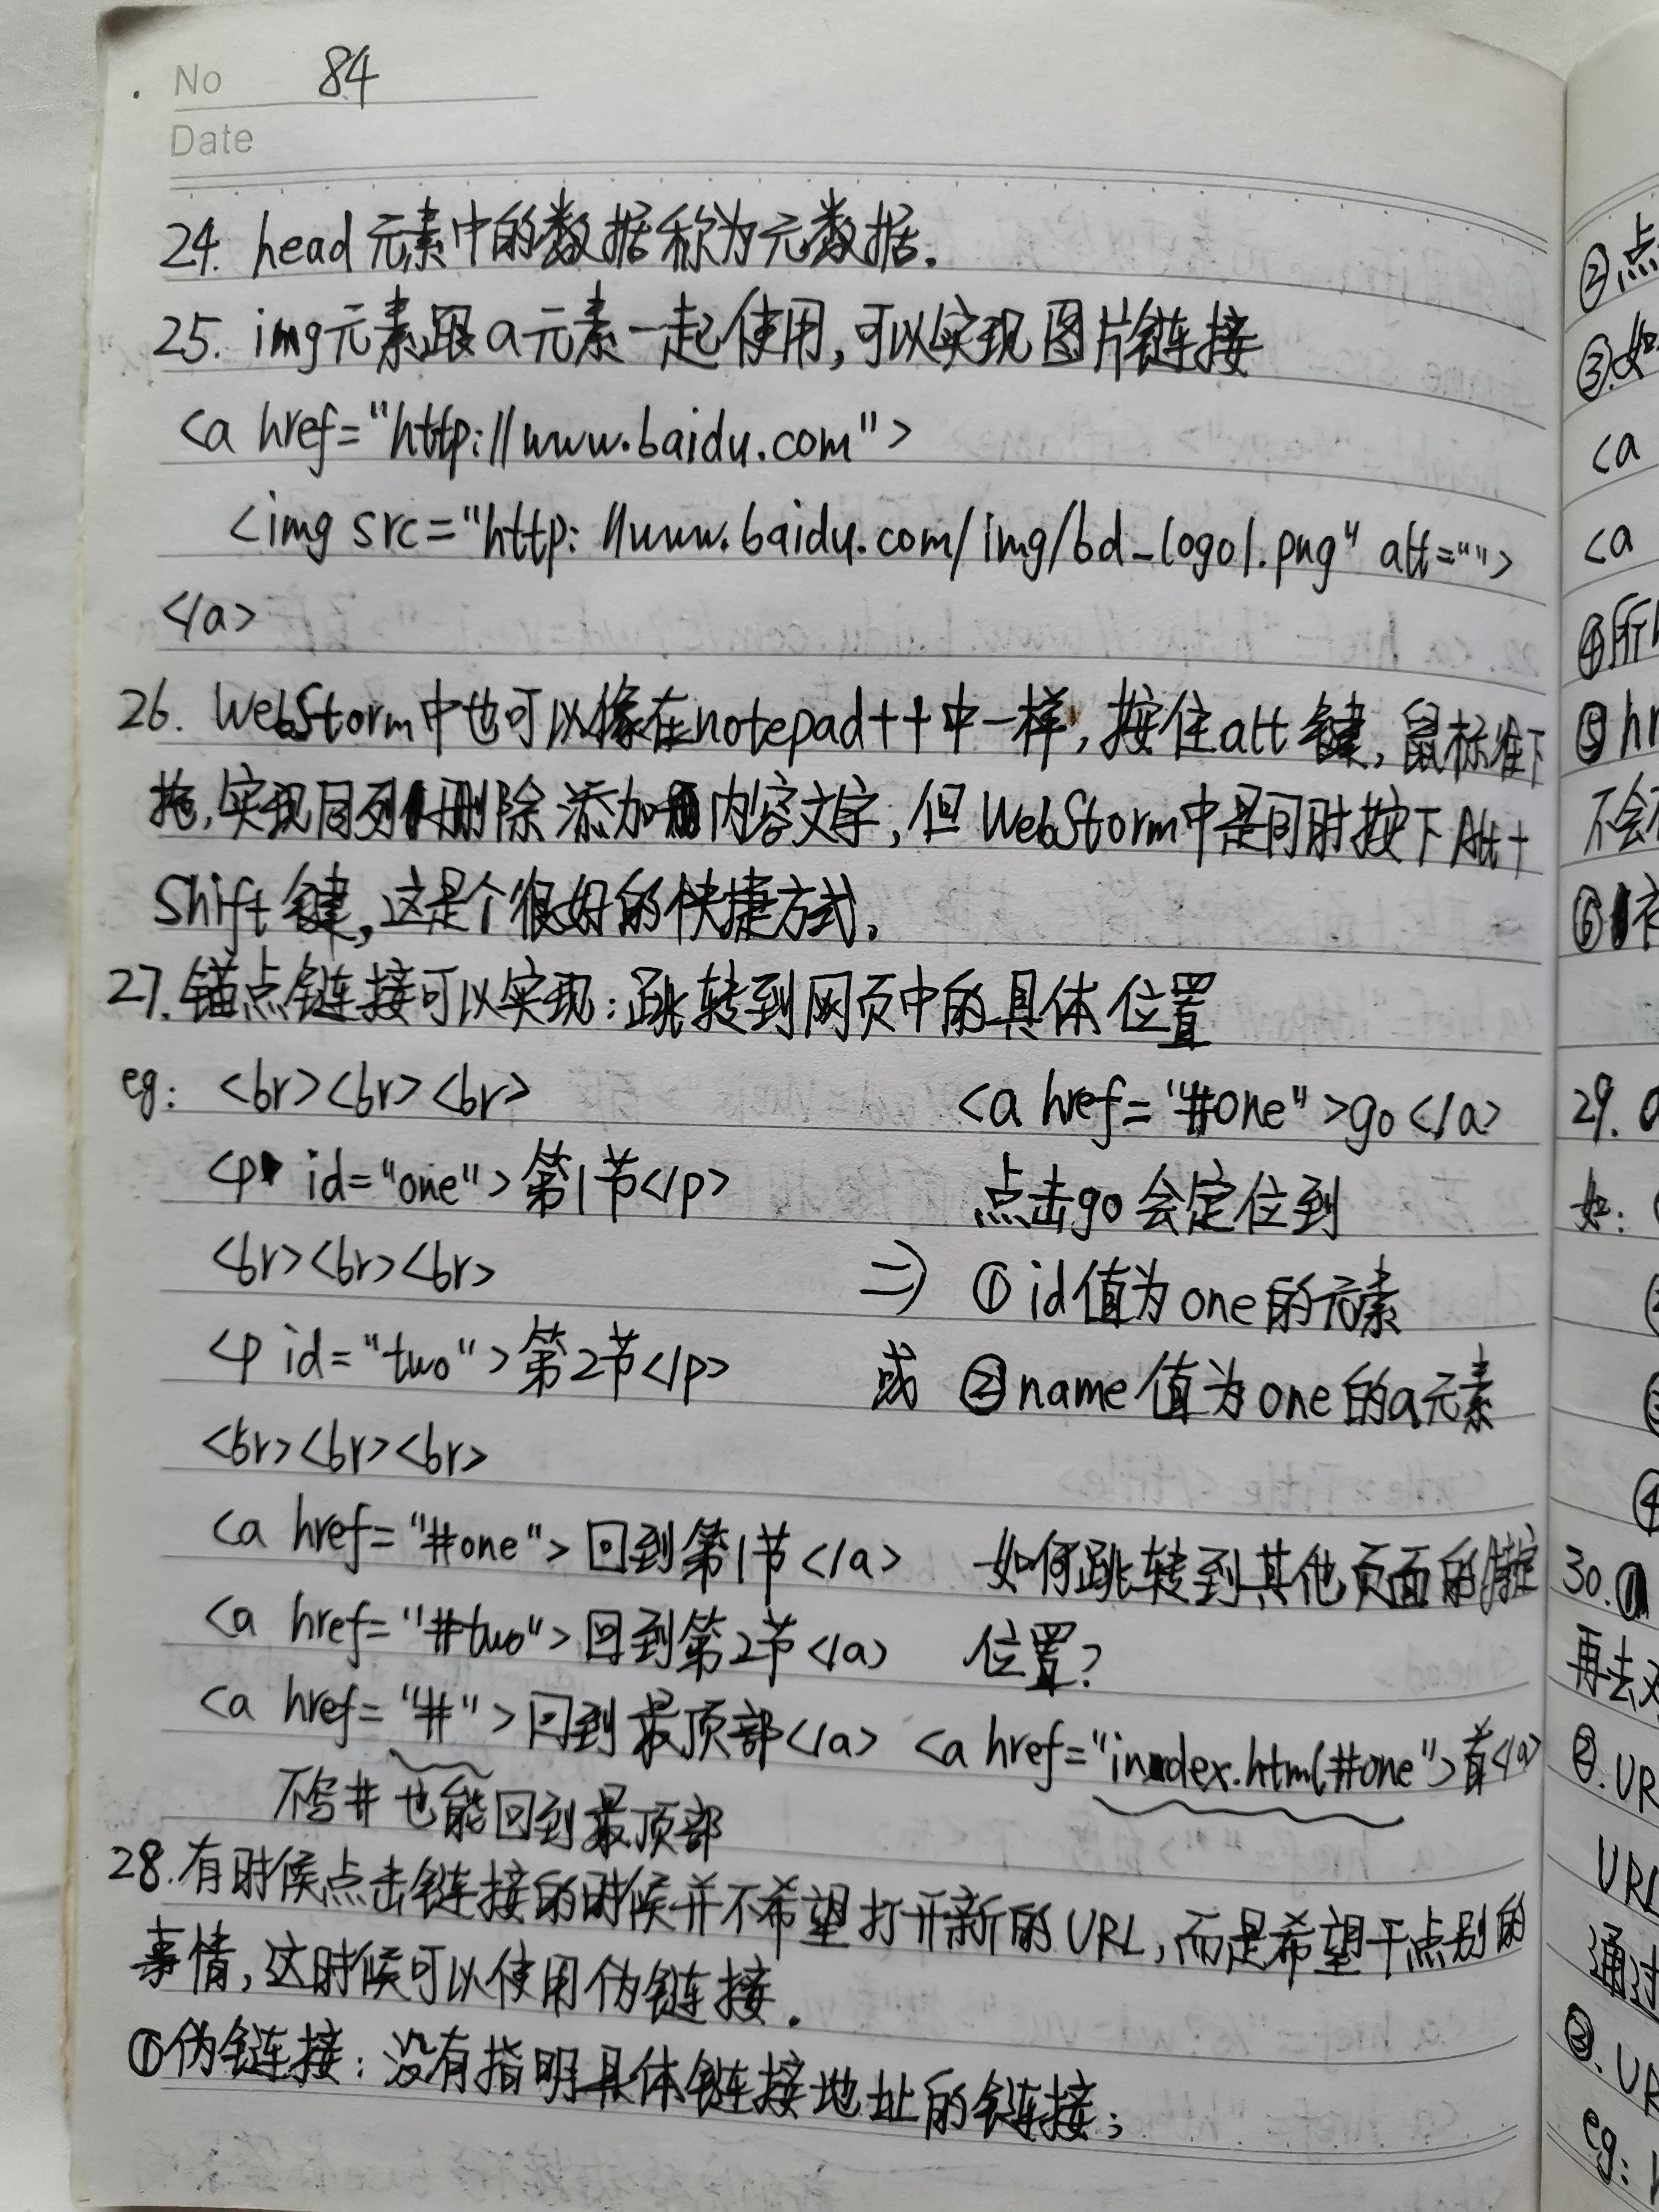 No 84
Date
24. head元素中的数据称为元数据.
25. img元素跟a元素一起使用,可以实现图片链接
<a href="http://www.baidu.com">
<img src="http://www.baidu.com/img/bd_logo1.png" alt="">
</a>
26. WebStorm中也可以像在notepad++中一样,按住alt键,鼠标往下
拖,实现同列删除添加内容文字,但WebStorm中是同时按下Alt+
Shift键,这是个很好的快捷方式。
27.锚点链接可以实现:跳转到网页中的具体位置
eg: <br><br><br>
<p id="one">第1节</p>
<br><br><br>
<p id="two">第2节</p>
<br><br><br>
<a href="#one">回到第1节</a>
<a href="#two">回到第2节</a>
<a href="#">回到最顶部</a>
不写#也能回到最顶部
<a href="#one">go</a>
点击go会定位到
=> ①id值为one的元素
或 ②name值为one的a元素
如何跳转到其他页面的指定
位置?
<a href="index.html#one">首</a>
28.有时候点击链接的时候并不希望打开新的URL,而是希望干点别的
事情,这时候可以使用伪链接.
①伪链接:没有指明具体链接地址的链接;
②点
③如
<a
<a
④所
⑤hr
不会
⑥
29. a
如:
④
30.①
再去
②.UR
URL
通过
③.UR
eg: